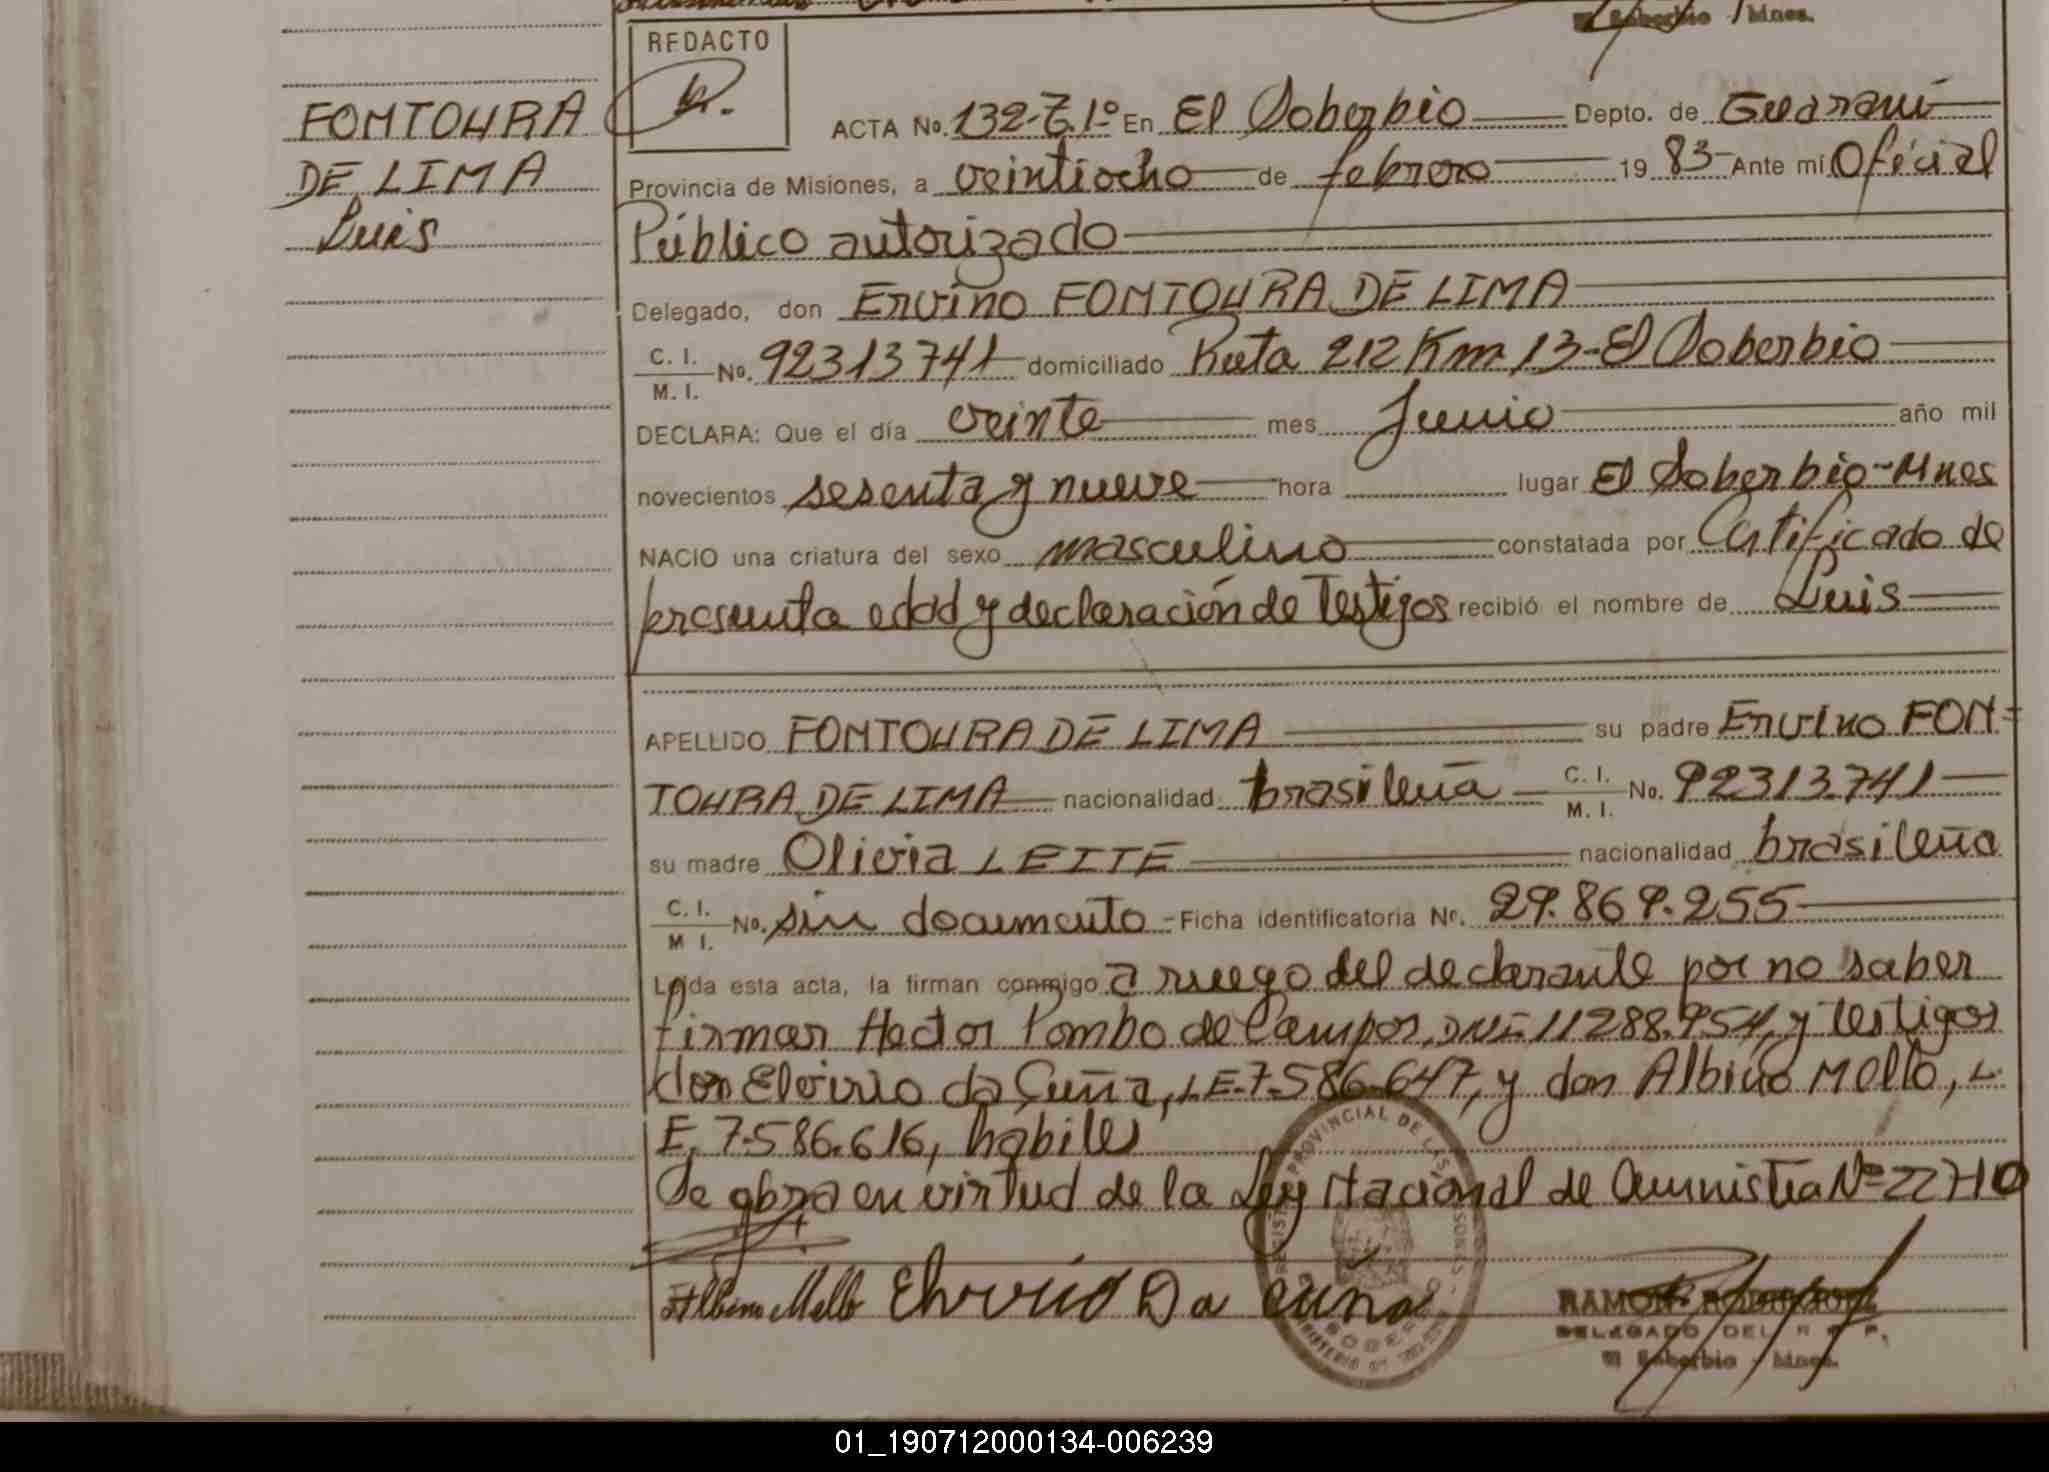 El Soberbio - Mnes.
REDACTO
FONTOURA
DE LIMA
Luis
ACTA No. 132-T.1º En El Soberbio Depto. de Guaraní
Provincia de Misiones, a veintiocho de febrero 19 83 Ante mí Oficial
Público autorizado
Delegado, don Ervino FONTOURA DE LIMA
C. I. / M. I. No. 92313741 domiciliado Ruta 212 Km 13-El Soberbio
DECLARA: Que el día veinte mes Junio año mil
novecientos sesenta y nueve hora lugar El Soberbio-Mnes
NACIO una criatura del sexo masculino constatada por Certificado de
presunta edad y declaración de Testigos recibió el nombre de Luis
APELLIDO FONTOURA DE LIMA su padre Ervino FON=
TOURA DE LIMA nacionalidad brasileña C. I. / M. I. No. 92313.741
su madre Olivia LEITE nacionalidad brasileña
C. I. / M I. No. sin documento - Ficha identificatoria Nº. 29.869.255
Leída esta acta, la firman conmigo a ruego del declarante por no saber
firmar Hector Pombo de Campos, DNI-11288.954, y testigos
don Elvirio da Cuña, LE-7.586.647, y don Albino Mello, L.
E. 7.586.616, habiles
Se obra en virtud de la Ley Nacional de Amnistia Nº 22710
Albino Mello Elvirio Da cuña
RAMON RODRIGUEZ
DELEGADO DEL R P P.
El Soberbio - Mnes.
01_190712000134-006239